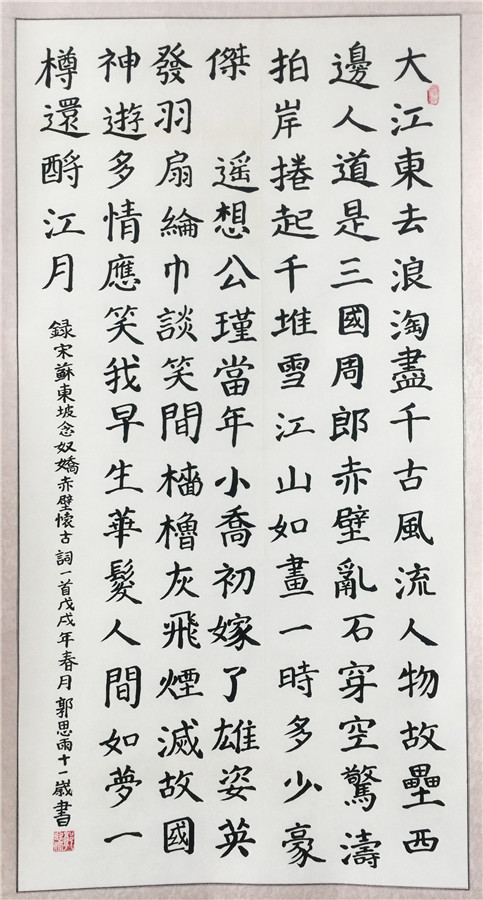 大江東去浪淘盡千古風流人物故壘西
邊人道是三國周郎赤壁亂石穿空驚濤
拍岸捲起千堆雪江山如畫一時多少豪
傑 遥想公瑾當年小喬初嫁了雄姿英
發羽扇綸巾談笑間檣櫓灰飛煙滅故國
神遊多情應笑我早生華髮人間如夢一
樽還酹江月
録宋蘇東坡念奴嬌赤壁懷古 詞一首戊戌年春月 郭思雨十一歲書